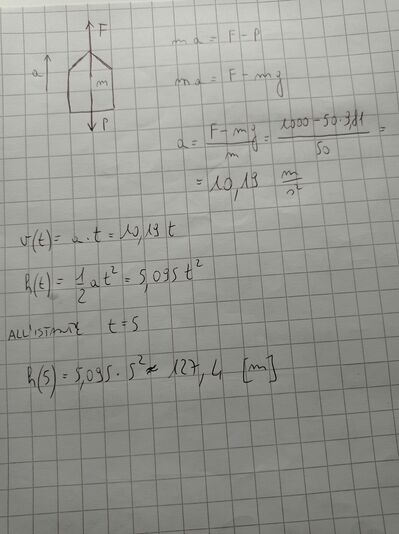 F
a
m
P
ma = F - P
ma = F - mg
a = \frac{F - mg}{m} = \frac{1000 - 50 \cdot 9,81}{50} =
= 10,19 \frac{m}{s^2}
v(t) = a \cdot t = 10,19 t
h(t) = \frac{1}{2} a t^2 = 5,095 t^2
ALL'ISTANTE t = 5
h(5) = 5,095 \cdot 5^2 ≈ 127,4 [m]